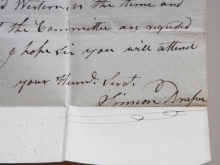 Western, or the time and
the Committee are requested
I hope Sir you will attend
your Humb. Servt.
Simeon Draper